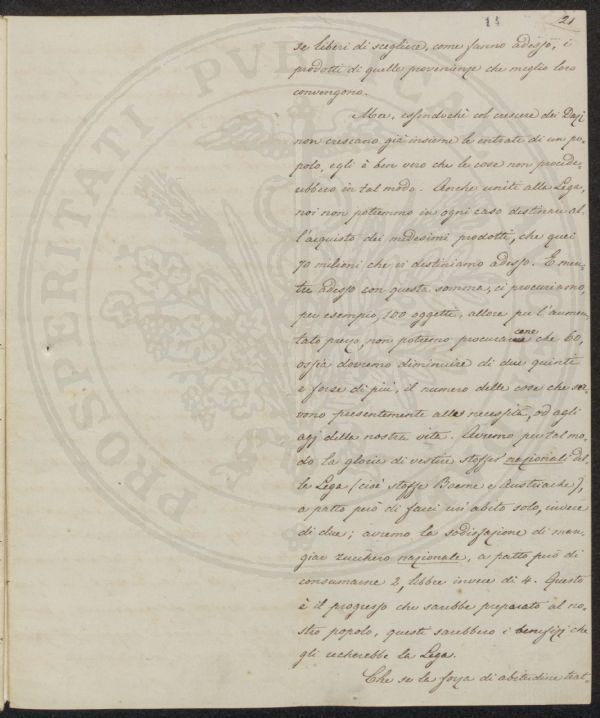 11 21
se liberi di scegliere, come fanno adesso, i
prodotti di quelle provenienze che meglio loro
convengono.
Ma, essendochè col crescere dei Dazj
non crescano già insieme le entrate di un po-
polo, egli è ben vero che le cose non procede-
rebbero in tal modo. Anche uniti alla Lega,
noi non potremmo in ogni caso destinare al-
l'acquisto dei medesimi prodotti, che quei
70 milioni che vi destiniamo adesso. E men-
tre adesso con questa somma, ci procuriamo,
per esempio, 100 oggetti, allora per l'aumen-
tato prezzo, non potremo procurarcene che 60,
ossia dovremo diminuire di due quinti
e forse di più, il numero delle cose che ser-
vono presentemente alle necessità, od agli
agj della nostra vita. Avremo per tal mo-
do la gloria di vestire stoffe nazionali del-
la Lega (cioè stoffe Boeme e Austriache),
a patto però di farci un'abito solo, invece
di due; avremo la sodisfazione di man-
giar zucchero nazionale, a patto però di
consumarne 2, libbre invece di 4. Questo
è il progresso che sarebbe preparato al no-
stro popolo, questi sarebbero i benefizi che
gli recherebbe la Lega.
Che se la forza di abitudine trat-
PROSPERITATI PUBLICAE